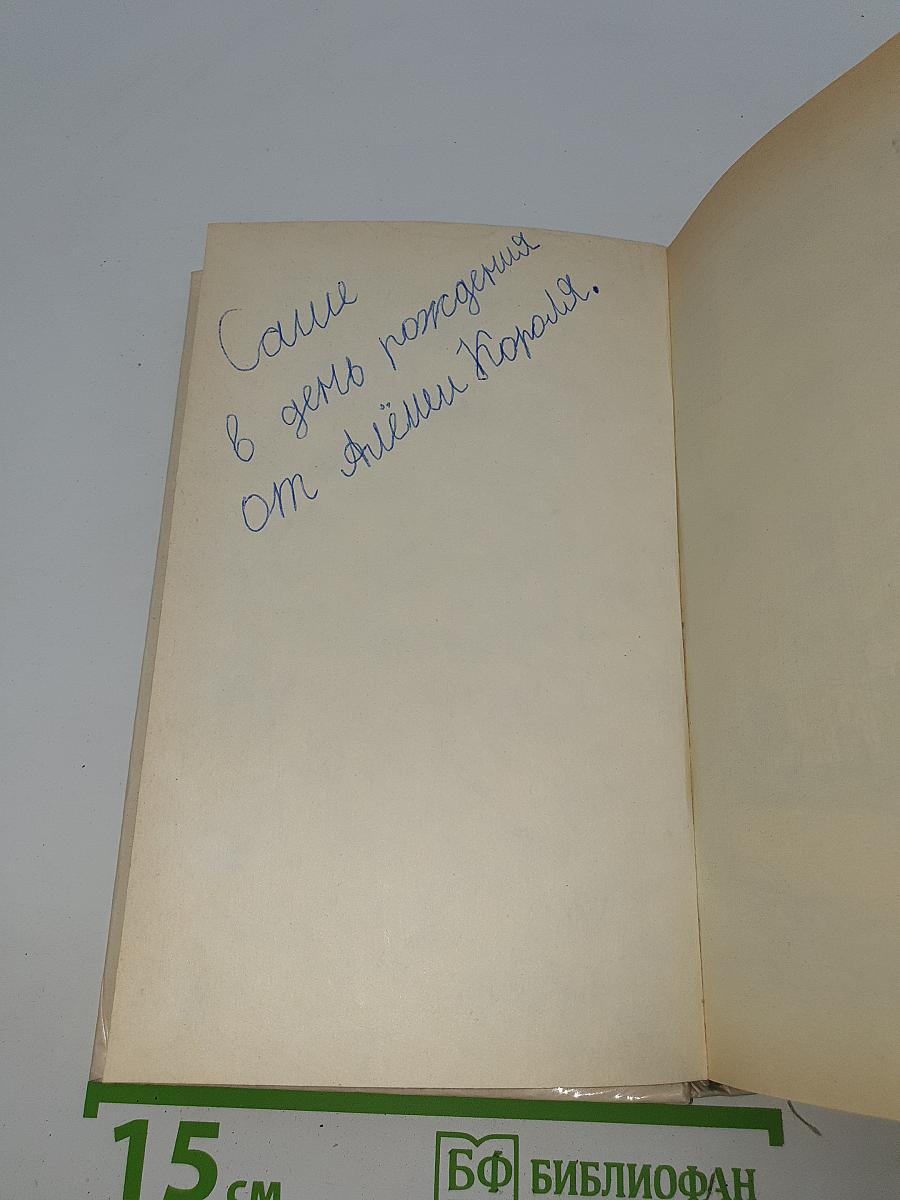 Саше
в день рождения
от Алёши Короля.
15 см
БФ БИБЛИОФАН